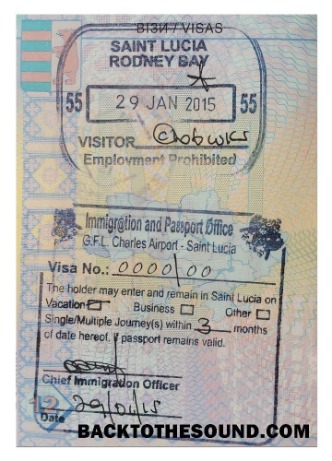 ВІЗИ / VISAS
SAINT LUCIA
RODNEY BAY
55 29 JAN 2015 55
VISITOR
Employment Prohibited
Immigration and Passport Office
G.F.L. Charles Airport - Saint Lucia
Visa No.: 0000/00
The holder may enter and remain in Saint Lucia on
Vacation Business Other
Single/Multiple Journey(s) within 3 months
of date hereof, if passport remains valid.
Chief Immigration Officer
12 29/01/15
Date
BACKTOTHESOUND.COM